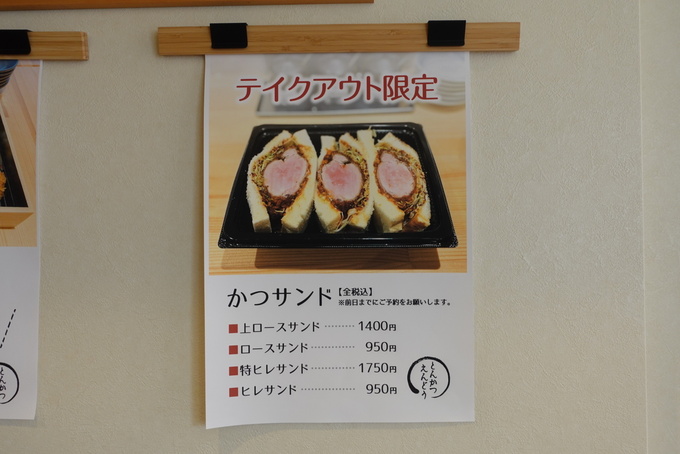 テイクアウト限定
かつサンド【全税込】
※前日までにご予約をお願いします。
■上ロースサンド ……… 1400円
■ロースサンド …………… 950円
■特ヒレサンド …………… 1750円
■ヒレサンド ……………… 950円
とんかつ
えんどう
とんかつ